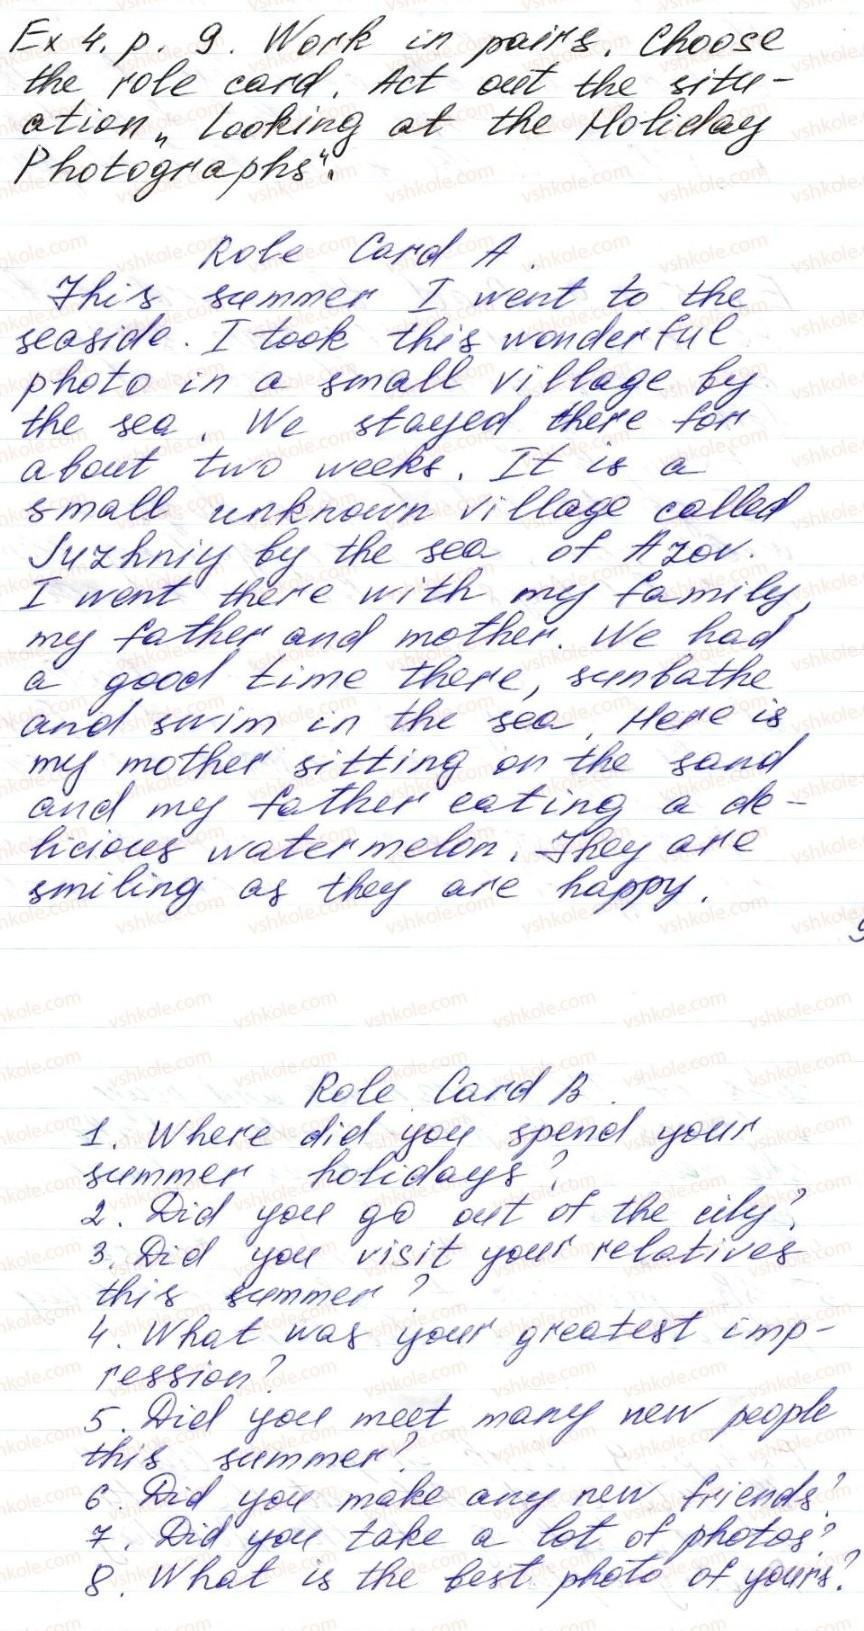 Ex 4. p. 9. Work in pairs. Choose
the role card. Act out the situ-
ation „Looking at the Holiday
Photographs".
Role Card A.
This summer I went to the
seaside. I took this wonderful
photo in a small village by
the sea. We stayed there for
about two weeks. It is a
small unknown village called
Juzhniy by the sea of Azov.
I went there with my family,
my father and mother. We had
a good time there, sunbathe
and swim in the sea. Here is
my mother sitting on the sand
and my father eating a de-
licious watermelon. They are
smiling as they are happy.
Role Card B.
1. Where did you spend your
summer holidays?
2. Did you go out of the city?
3. Did you visit your relatives
this summer?
4. What was your greatest imp-
ression?
5. Did you meet many new people
this summer?
6. Did you make any new friends?
7. Did you take a lot of photos?
8. What is the best photo of yours?